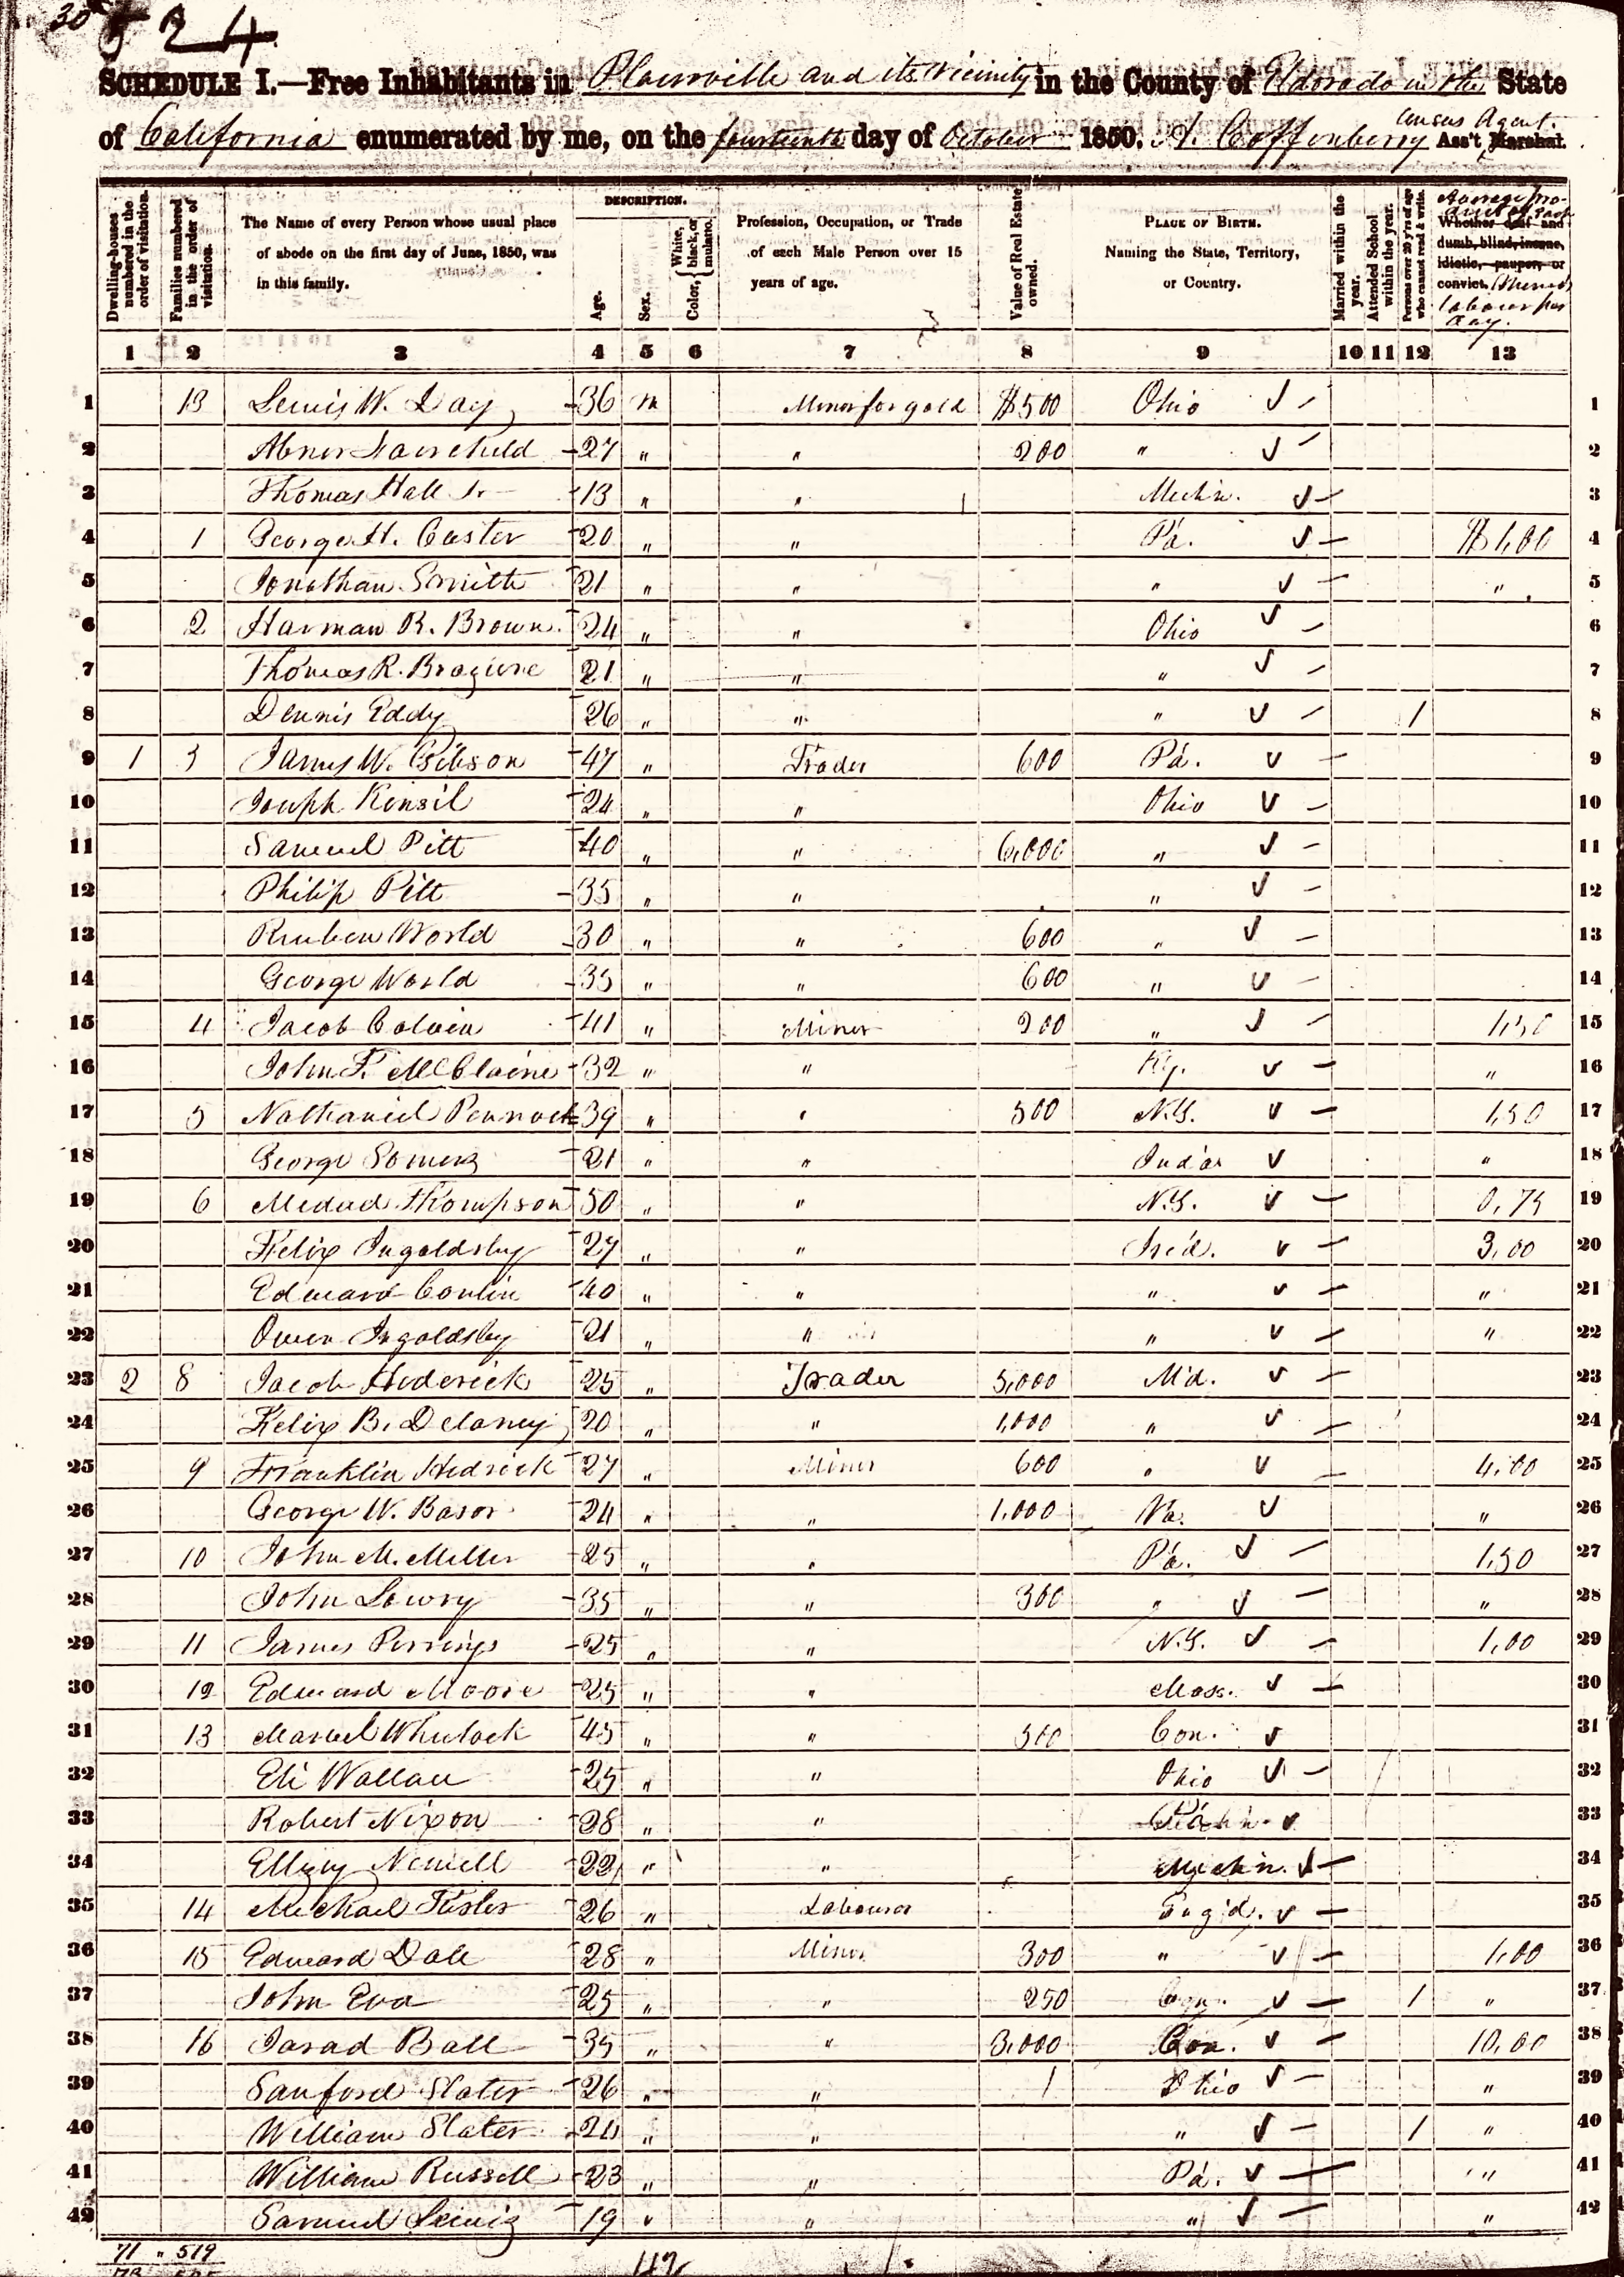 524
SCHEDULE I.—Free Inhabitants in Placerville and its Vicinity in the County of Eldorado in the State
of California enumerated by me, on the fourteenth day of October 1850. Coffenberry Census Agent. Ass't Marshal.
Dwelling-houses numbered in the order of visitation.
Families numbered in the order of visitation.
The Name of every Person whose usual place of abode on the first day of June, 1850, was in this family.
DESCRIPTION.
Age.
Sex.
Color, { White, black, or mulatto.
Profession, Occupation, or Trade of each Male Person over 15 years of age.
Value of Real Estate owned.
PLACE OF BIRTH. Naming the State, Territory, or Country.
Married within the year.
Attended School within the year.
Persons over 20 y'rs of age who cannot read & write.
Whether deaf and dumb, blind, insane, idiotic, pauper, or convict.
labour per day.
1 2 3 4 5 6 7 8 9 10 11 12 13
1 13 Lewis W. Day 36 m Miner for gold $500 Ohio 1
2 Abner Fairchild 27 " " 200 " 2
3 Thomas Hall Jr 13 " " Michn. 3
4 1 George H. Caster 20 " " Pa. $1,00 4
5 Jonathan Smith 21 " " " " 5
6 2 Harman R. Brown 24 " " Ohio 6
7 Thomas R. 21 " " " 7
8 Dennis Eddy 26 " " " 1 8
9 1 3 James W. Gibson 47 " Trader 600 Pa. 9
10 Joseph Kinsil 24 " " Ohio 10
11 Samuel Pitt 40 " " 6,000 " 11
12 Philip Pitt 35 " " " 12
13 Reuben World 30 " " 600 " 13
14 George World 35 " " 600 " 14
15 4 Jacob Colvin 41 " Miner 200 " 1,50 15
16 John F. McClaine 32 " " Ky. " 16
17 5 Nathaniel Pennock 39 " " 500 N.Y. 1,50 17
18 George Somers 21 " " Ind'a " 18
19 6 Medad Thompson 50 " " N.Y. 0,75 19
20 Felix Ingoldsby 27 " " Ire'd. 3,00 20
21 Edward Conlin 40 " " " " 21
22 Owen Ingoldsby 21 " " " " 22
23 2 8 Jacob Hederick 25 " Trader 5,000 M'd. 23
24 Felix B. Delaney 20 " " 1,000 " 24
25 9 Franklin Hedrick 27 " Miner 600 " 4,00 25
26 George W. Basor 24 " " 1,000 Va. " 26
27 10 John M. Miller 25 " " Pa. 1,50 27
28 John Lowry 35 " " 300 " " 28
29 11 James Perrings 25 " " N.Y. 1,00 29
30 12 Edward Moore 25 " " Mass. 30
31 13 Marvel Whelock 45 " " 500 Con. 31
32 Eli Wallace 25 " " Ohio 32
33 Robert Nixon 28 " " 33
34 Newell 22 " " Michn. 34
35 14 Michael Kisler 26 " Labourer Eng'd. 35
36 15 Edward Dale 28 " Miner 300 " 1,00 36
37 John Eva 25 " " 250 1 " 37
38 16 Jarad Ball 35 " " 3,000 Con. 10,00 38
39 Sanford Slater 26 " " Ohio " 39
40 William Slater 24 " " " 1 " 40
41 William Russell 23 " " Pa. " 41
42 Samuel Lewis 19 " " " " 42
71 " 519
42